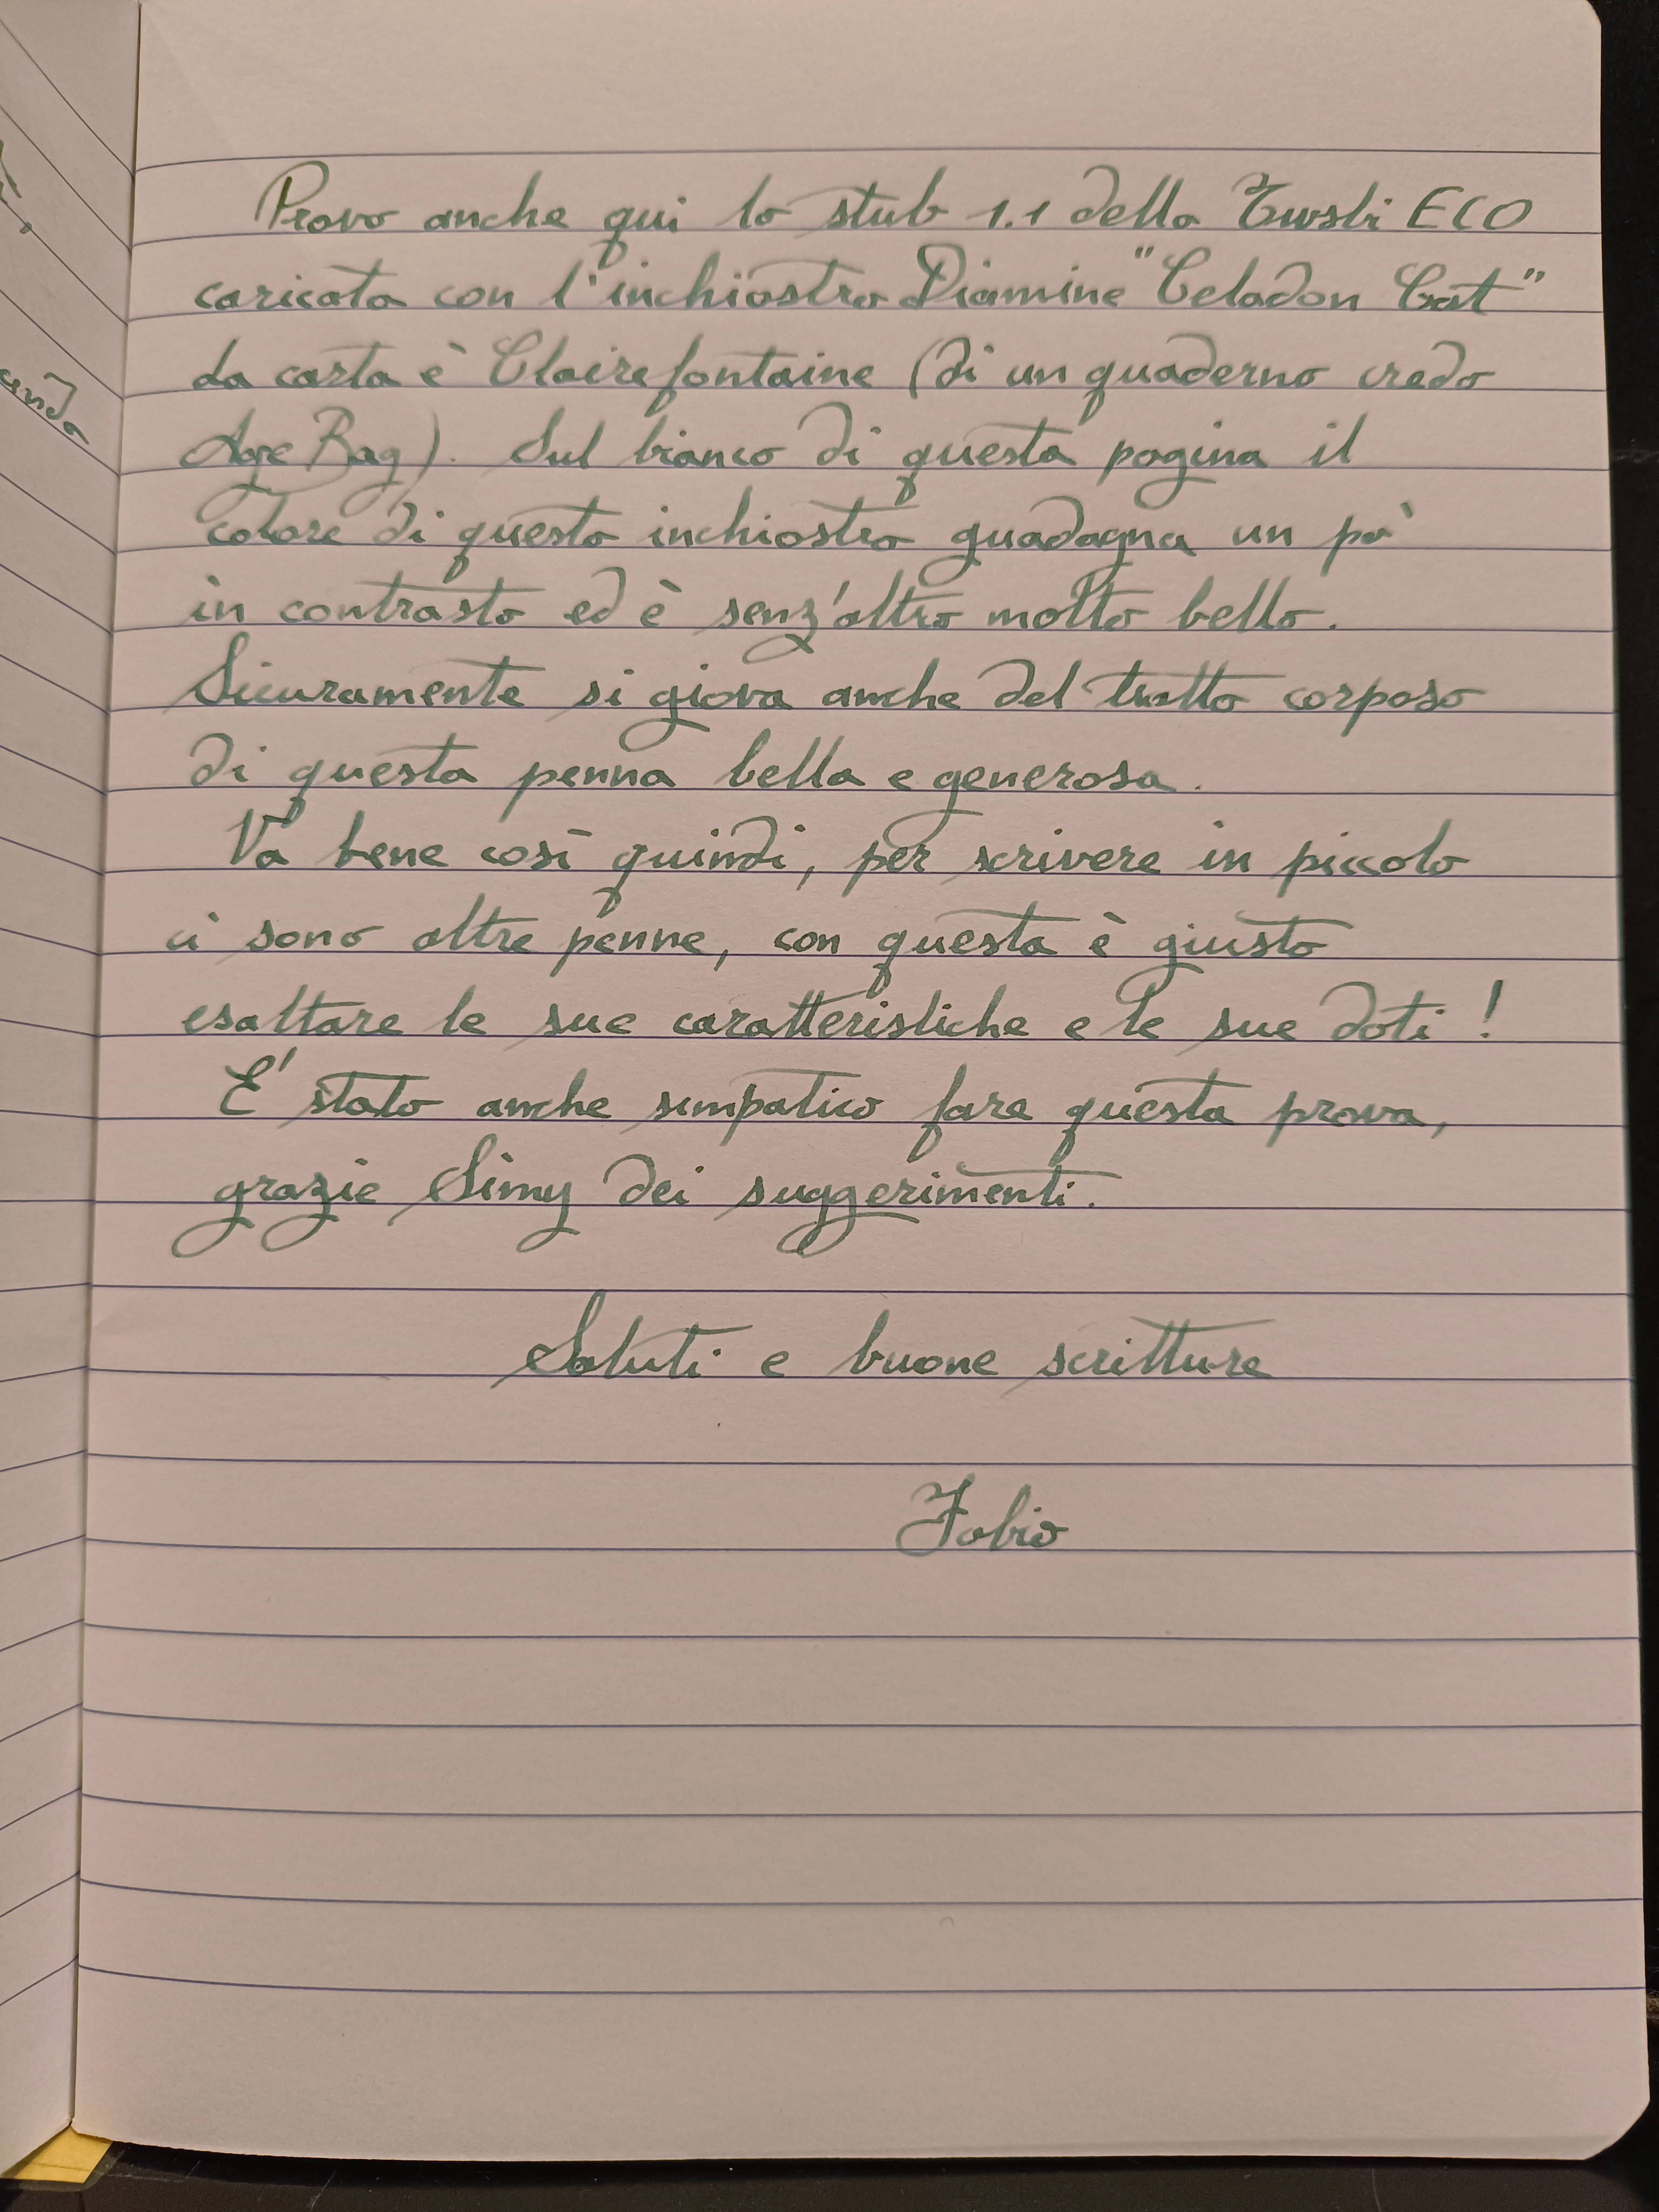 Provo anche qui lo stub 1.1 della Twsbi ECO
caricata con l'inchiostro Diamine "Celadon Cat"
La carta è Clairefontaine (di un quaderno credo
Age Bag). Sul bianco di questa pagina il
colore di questo inchiostro guadagna un pò
in contrasto ed è senz'altro molto bello.
Sicuramente si giova anche del tratto corposo
di questa penna bella e generosa.
Va bene così quindi, per scrivere in piccolo
ci sono altre penne, con questa è giusto
esaltare le sue caratteristiche e le sue doti!
E' stato anche simpatico fare questa prova,
grazie Simy dei suggerimenti.
Saluti e buone scritture
Fabio